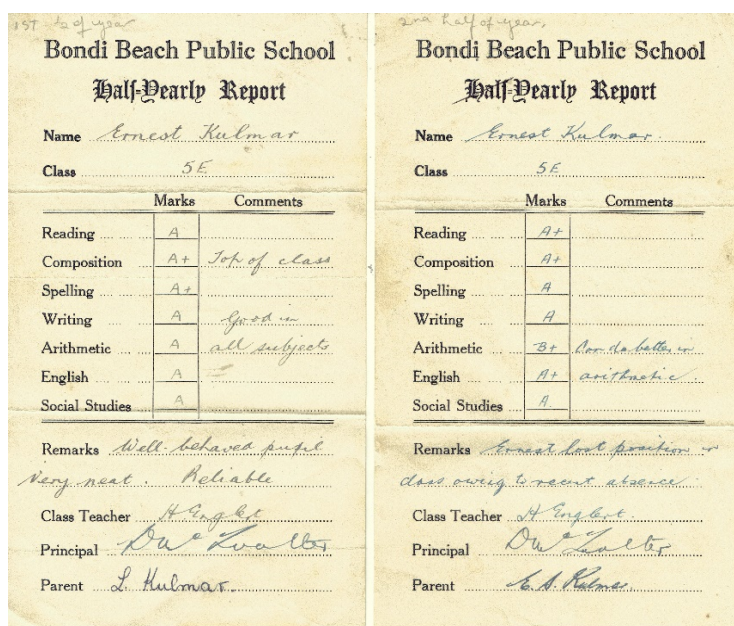 1st ½ of year
Bondi Beach Public School
Half-Yearly Report
Name Ernest Kulmar
Class 5E
Marks Comments
Reading A
Composition A+ Top of class
Spelling A+
Writing A Good in
Arithmetic A all subjects
English A
Social Studies A
Remarks Well-behaved pupil
Very neat. Reliable
Class Teacher H Englert
Principal
Parent L. Kulmar.
2nd half of year.
Bondi Beach Public School
Half-Yearly Report
Name Ernest Kulmar.
Class 5E
Marks Comments
Reading A+
Composition A+
Spelling A
Writing A
Arithmetic B+ Can do better in
English A+ arithmetic.
Social Studies A
Remarks Ernest lost position in
class owing to recent absence.
Class Teacher H Englert.
Principal
Parent